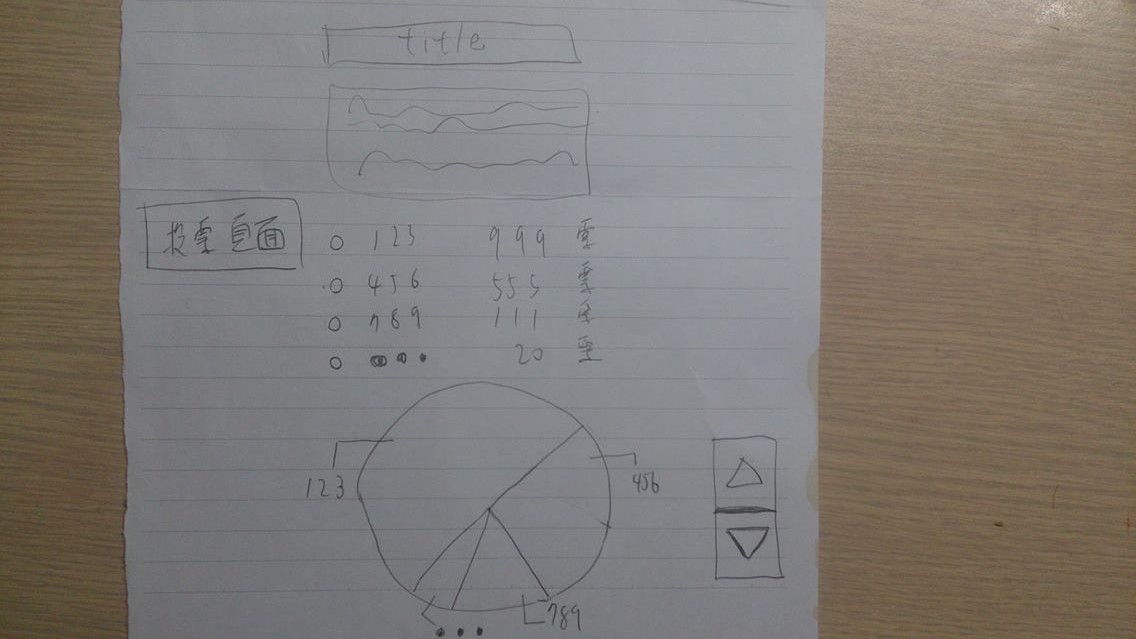 title
投票頁面
123 999 票
456 555 票
789 111 票
••• 20 票
123
456
789
•••